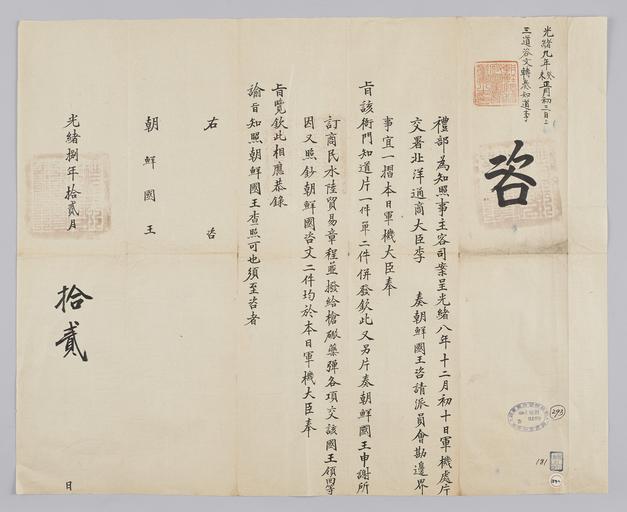 光緒九年癸未正月初三日
三道咨文轉奏知道事
咨
禮部為知照事主客司案呈光緒八年十二月初十日軍機處片
交署北洋通商大臣李　奏朝鮮國王咨請派員會勘邊界
事宜一摺本日軍機大臣奉
旨該衙門知道片一件單二件併發欽此又另片奏朝鮮國王申謝所
訂商民水陸貿易章程並撥給槍礮藥彈各項交該國王領回等
因又照鈔朝鮮國咨文二件均於本日軍機大臣奉
旨覽欽此相應恭錄
諭旨知照朝鮮國王查照可也須至咨者
右　咨
朝鮮國王
光緒捌年拾貳月
拾貳
日
293
181